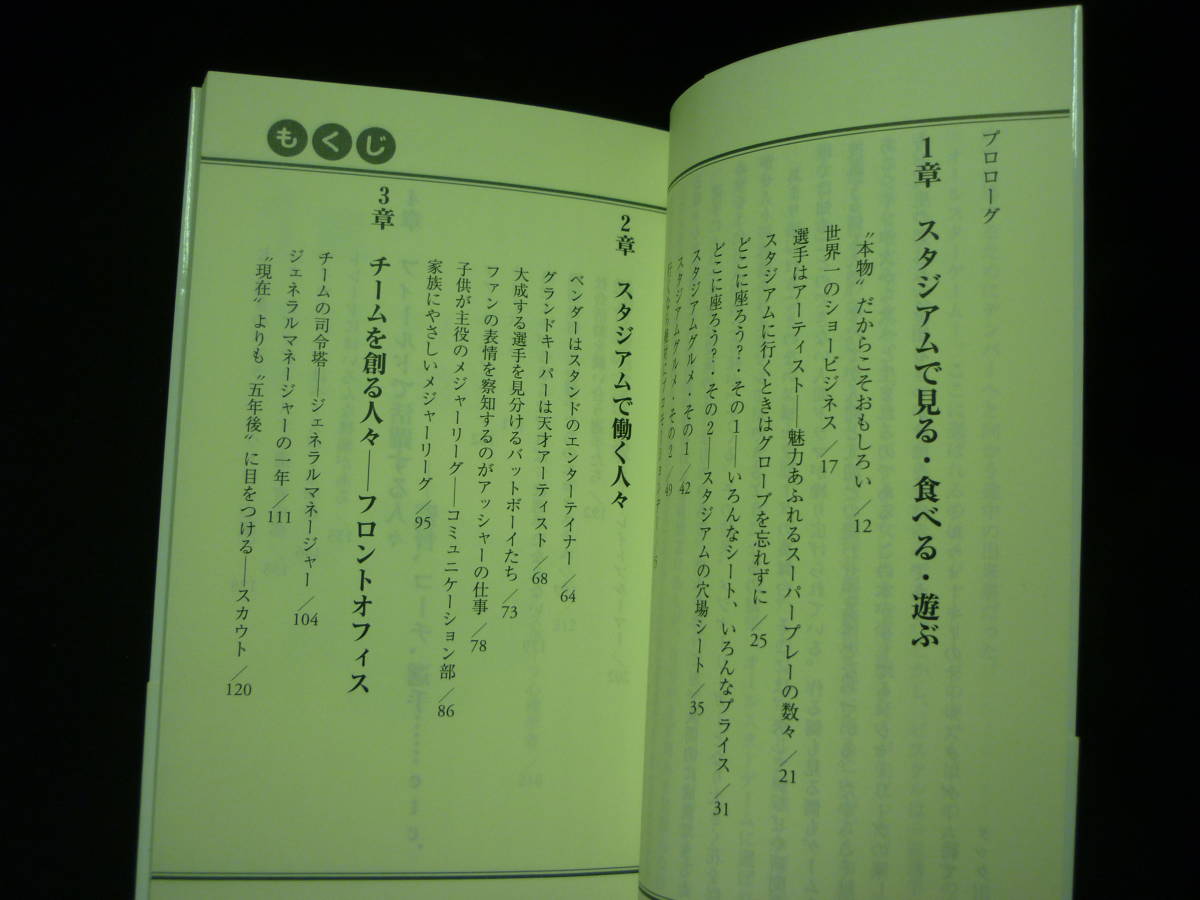 プロローグ
1章 スタジアムで見る・食べる・遊ぶ
〝本物〟だからこそおもしろい／12
世界一のショービジネス／17
選手はアーティスト——魅力あふれるスーパープレーの数々／21
スタジアムに行くときはグローブを忘れずに／25
どこに座ろう？・その1——いろんなシート、いろんなプライス／31
どこに座ろう？・その2——スタジアムの穴場シート／35
スタジアムグルメ・その1／42
スタジアムグルメ・その2／49
もくじ
2章 スタジアムで働く人々
ベンダーはスタンドのエンターテイナー／64
グランドキーパーは天才アーティスト／68
大成する選手を見分けるバットボーイたち／73
ファンの表情を察知するのがアッシャーの仕事／78
子供が主役のメジャーリーグ——コミュニケーション部／86
家族にやさしいメジャーリーグ／95
3章 チームを創る人々——フロントオフィス
チームの司令塔——ジェネラルマネージャー／104
ジェネラルマネージャーの一年／111
〝現在〟よりも〝五年後〟に目をつける——スカウト／120